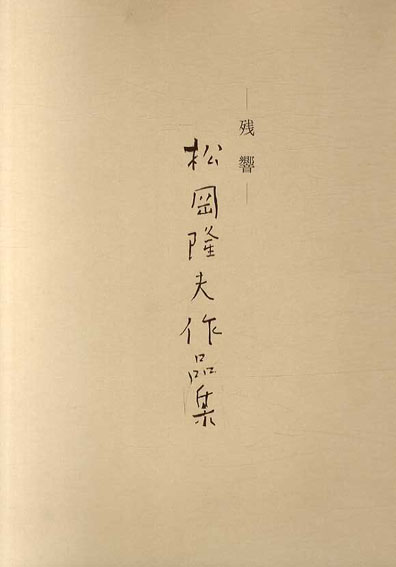 ―残響―
松岡隆夫作品集